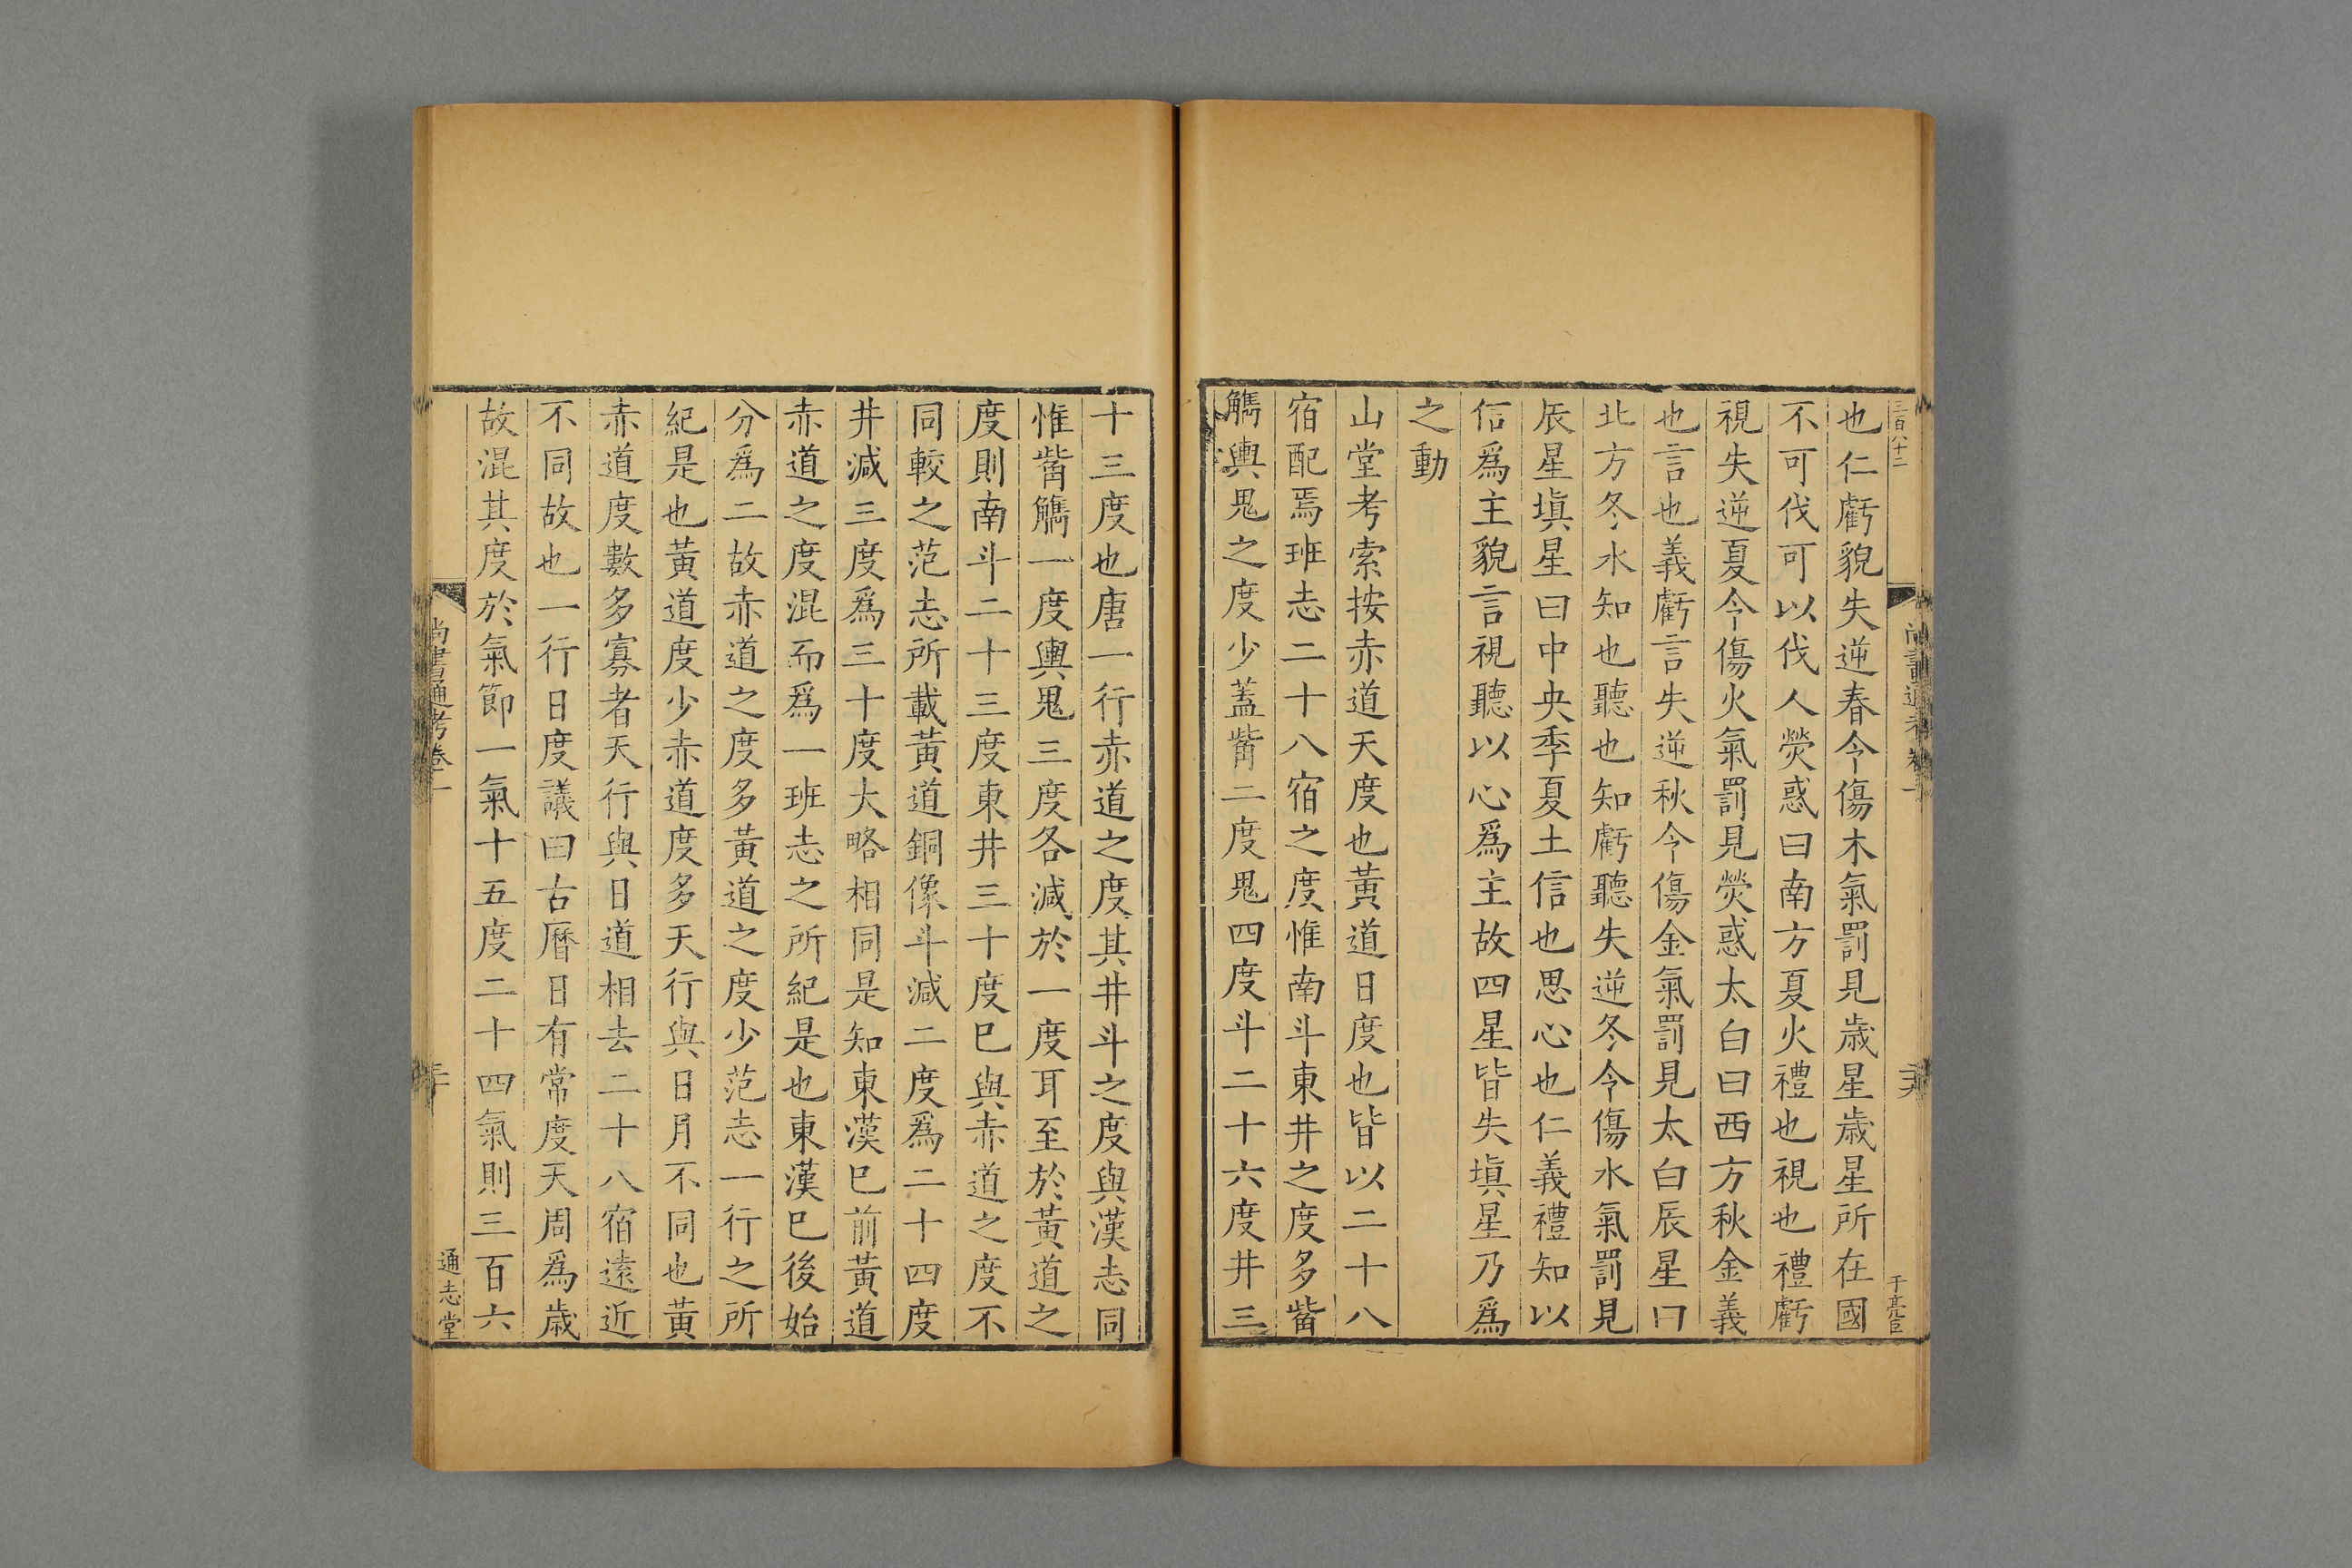 三百八十二
尚書通考卷一
于亮臣
也仁虧貌失逆春令傷木氣罰見歳星歳星所在國
不可伐可以伐人熒惑曰南方夏火禮也視也禮虧
視失逆夏令傷火氣罰見熒惑太白曰西方秋金義
也言也義虧言失逆秋令傷金氣罰見太白辰星曰
北方冬水知也聽也知虧聽失逆冬令傷水氣罰見
辰星塡星曰中央季夏土信也思心也仁義禮知以
信爲主貌言視聽以心爲主故四星皆失塡星乃爲
之動
山堂考索按赤道天度也黃道日度也皆以二十八
宿配焉班志二十八宿之度惟南斗東井之度多觜
觿輿鬼之度少蓋觜二度鬼四度斗二十六度井三
十三度也唐一行赤道之度其井斗之度與漢志同
惟觜觿一度輿鬼三度各減於一度耳至於黃道之
度則南斗二十三度東井三十度巳與赤道之度不
同較之范志所載黃道銅儀斗減二度爲二十四度
井減三度爲三十度大略相同是知東漢巳前黃道
赤道之度混而爲一班志之所紀是也東漢巳後始
分爲二故赤道之度多黃道之度少范志一行之所
紀是也黃道度少赤道度多天行與日月不同也黃
赤道度數多寡者天行與日道相去二十八宿遠近
不同故也一行日度議曰古曆日有常度天周爲歳
故混其度於氣節一氣十五度二十四氣則三百六
尚書通考卷一
通志堂